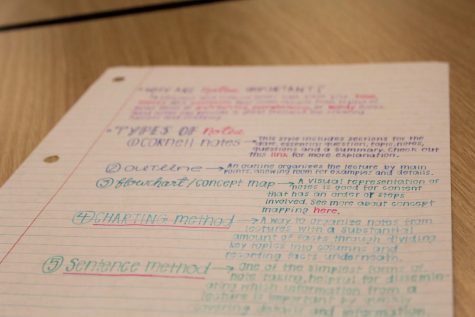 WHY ARE Notes IMPORTANT?
TYPES OF Notes
① CORNELL NOTES → This style includes sections for the
date, essential question, topic, notes,
questions and a summary. Check out
this link for more explanation.
② outline → An outline organizes the lecture by main
points, allowing room for examples and details.
③ flowchart/concept map → A visual representation of
notes is good for content
that has an order or steps
involved. See more about concept
mapping here.
④ CHARTING method → A way to organize notes from
lectures with a substantial
amount of facts through dividing
key topics into columns and
recording facts underneath.
⑤ Sentence method → One of the simplest forms of
note taking, helpful for
which information from a
lecture is important by quickly
covering details and information.